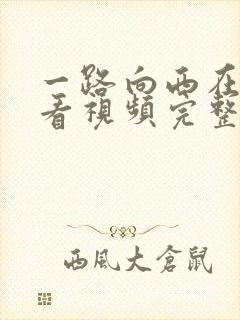 一路向西在
看视頻完整
西風大倉鼠